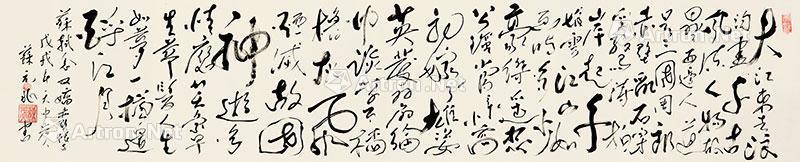 大江東去浪
淘盡千古
風流人物故
壘西邊人道
是三國周郎
赤壁亂石
穿空驚濤拍
岸捲起千
堆雪江山如
畫一時多少
豪傑遙想
公瑾當年小喬
初嫁了雄姿
英發羽扇綸
巾談笑間檣
櫓灰飛
煙滅故國
神遊多
情應笑我早
生華髮人生
如夢一樽還
酹江月
蘇軾念奴嬌赤壁
戊戌
書